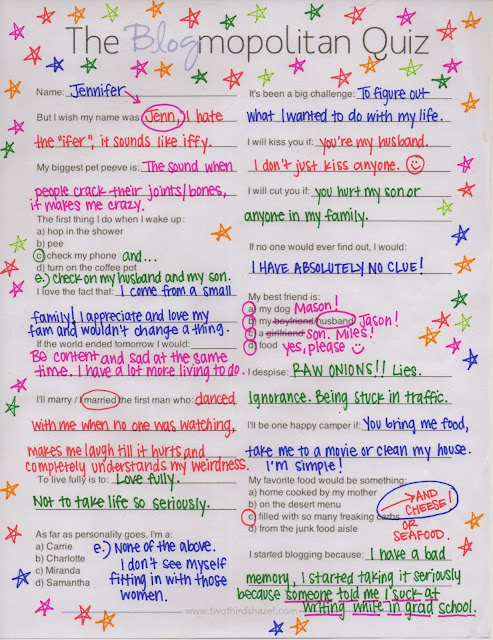 The Blogmopolitan Quiz
Name: Jennifer
But I wish my name was: Jenn, I hate
the "ifer", it sounds like iffy.
My biggest pet peeve is: The sound when
people crack their joints/bones,
it makes me crazy.
The first thing I do when I wake up:
a) hop in the shower
b) pee
c) check my phone and...
d) turn on the coffee pot
e.) check on my husband and my son.
I love the fact that: I come from a small
family! I appreciate and love my
fam and wouldn't change a thing.
If the world ended tomorrow I would:
Be content and sad at the same
time. I have a lot more living to do.
I'll marry / I married the first man who: danced
with me when no one was watching,
makes me laugh till it hurts and
completely understands my weirdness.
To live fully is to: Love fully.
Not to take life so seriously.
As far as personality goes, I'm a:
a) Carrie
b) Charlotte
c) Miranda
d) Samantha
e.) None of the above.
I don't see myself
fitting in with those
women.
It's been a big challenge: To figure out
what I wanted to do with my life.
I will kiss you if: you're my husband.
I don't just kiss anyone.
I will cut you if: you hurt my son or
anyone in my family.
If no one would ever find out, I would:
I HAVE ABSOLUTELY NO CLUE!
My best friend is:
a) my dog Mason!
b) my boyfriend/husband Jason!
c) a girlfriend son. Miles!
d) food yes, please
I despise: RAW ONIONS!! Lies.
Ignorance. Being stuck in traffic.
I'll be one happy camper if: You bring me food,
take me to a movie or clean my house.
I'm simple!
My favorite food would be something:
a) home cooked by my mother
b) on the desert menu
c) filled with so many freaking carbs
d) from the junk food aisle
AND
CHEESE!
OR
SEAFOOD.
I started blogging because: I have a bad
memory, I started taking it seriously
because someone told me I suck at
writing while in grad school.
www.twothirdshazel.com